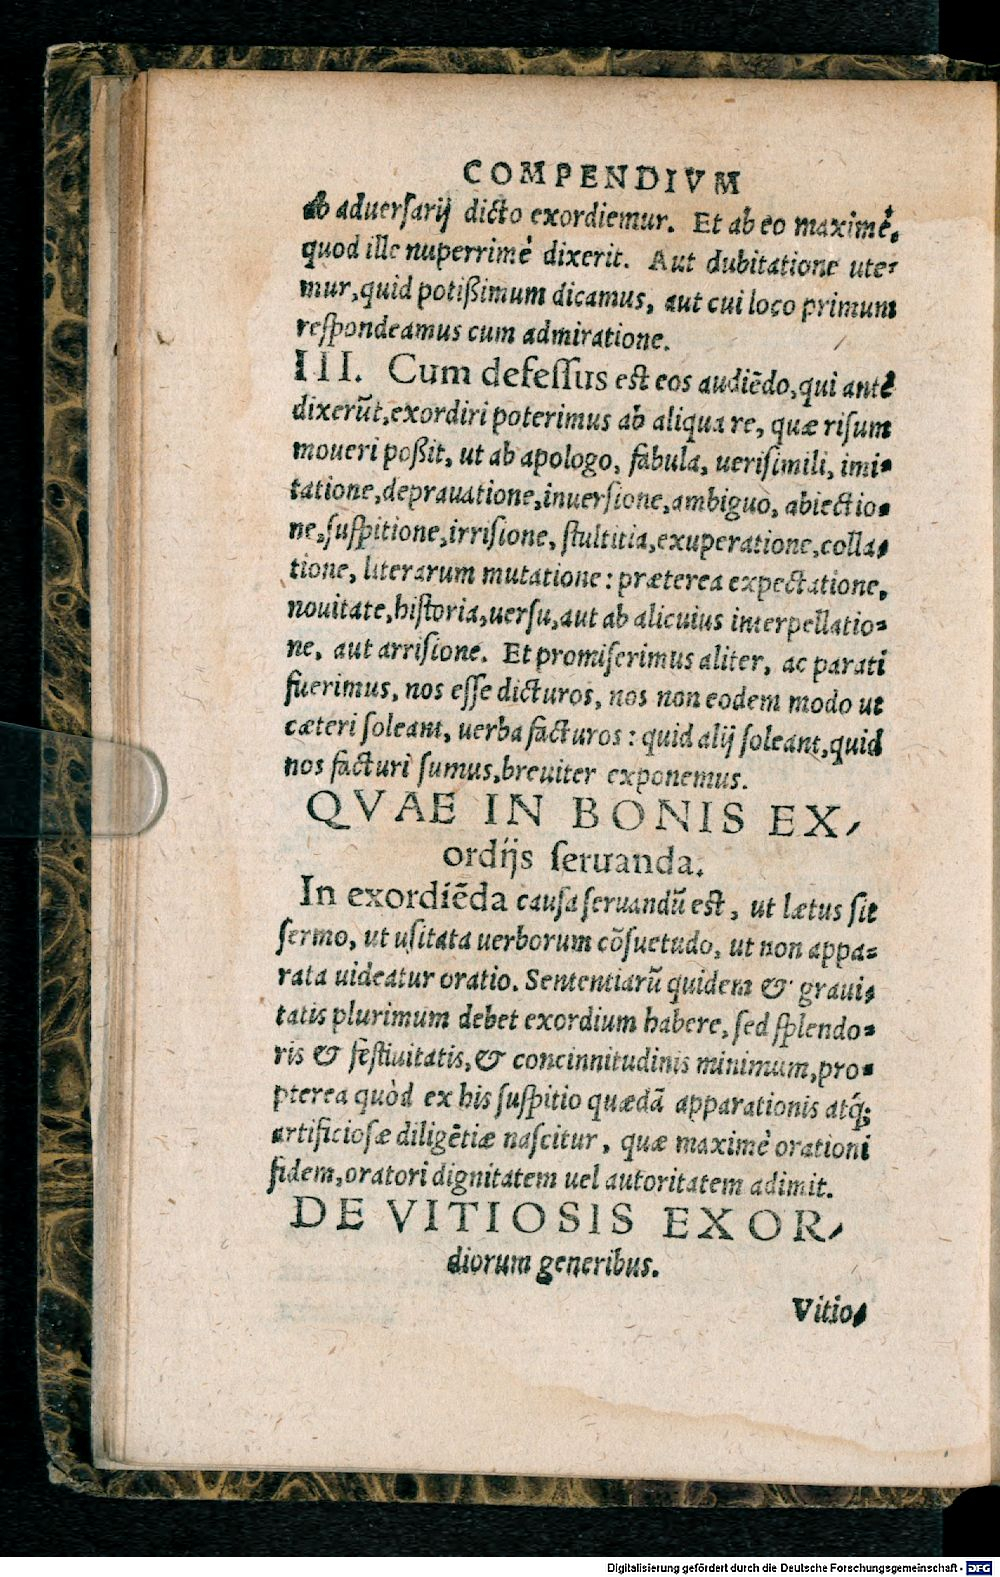 COMPENDIVM
ab aduersarij dicto exordiemur. Et ab eo maximè,
quod ille nuperrimè dixerit. Aut dubitatione ute-
mur, quid potißimum dicamus, aut cui loco primum
respondeamus cum admiratione.
III. Cum defessus est eos audiēdo, qui ante
dixerūt, exordiri poterimus ab aliqua re, quæ risum
moueri poßit, ut ab apologo, fabula, uerisimili, imi-
tatione, deprauatione, inuersione, ambiguo, abiectio-
ne, suspitione, irrisione, stultitia, exuperatione, colla-
tione, literarum mutatione: præterea expectatione,
nouitate, historia, uersu, aut ab alicuius interpellatio-
ne, aut arrisione. Et promiserimus aliter, ac parati
fuerimus, nos esse dicturos, nos non eodem modo ut
cæteri soleant, uerba facturos: quid alij soleant, quid
nos facturi sumus, breuiter exponemus.
QVAE IN BONIS EX-
ordijs seruanda.
In exordiēda causa seruandū est, ut lætus sit
sermo, ut usitata uerborum cōsuetudo, ut non appa-
rata uideatur oratio. Sententiarū quidem & graui-
tatis plurimum debet exordium habere, sed splendo-
ris & festiuitatis, & concinnitudinis minimum, pro-
pterea quòd ex his suspitio quædā apparationis atq́;
artificiosæ diligētiæ nascitur, quæ maximè orationi
fidem, oratori dignitatem uel autoritatem adimit.
DE VITIOSIS EXOR-
diorum generibus.
Vitio-
Digitalisierung gefördert durch die Deutsche Forschungsgemeinschaft - DFG